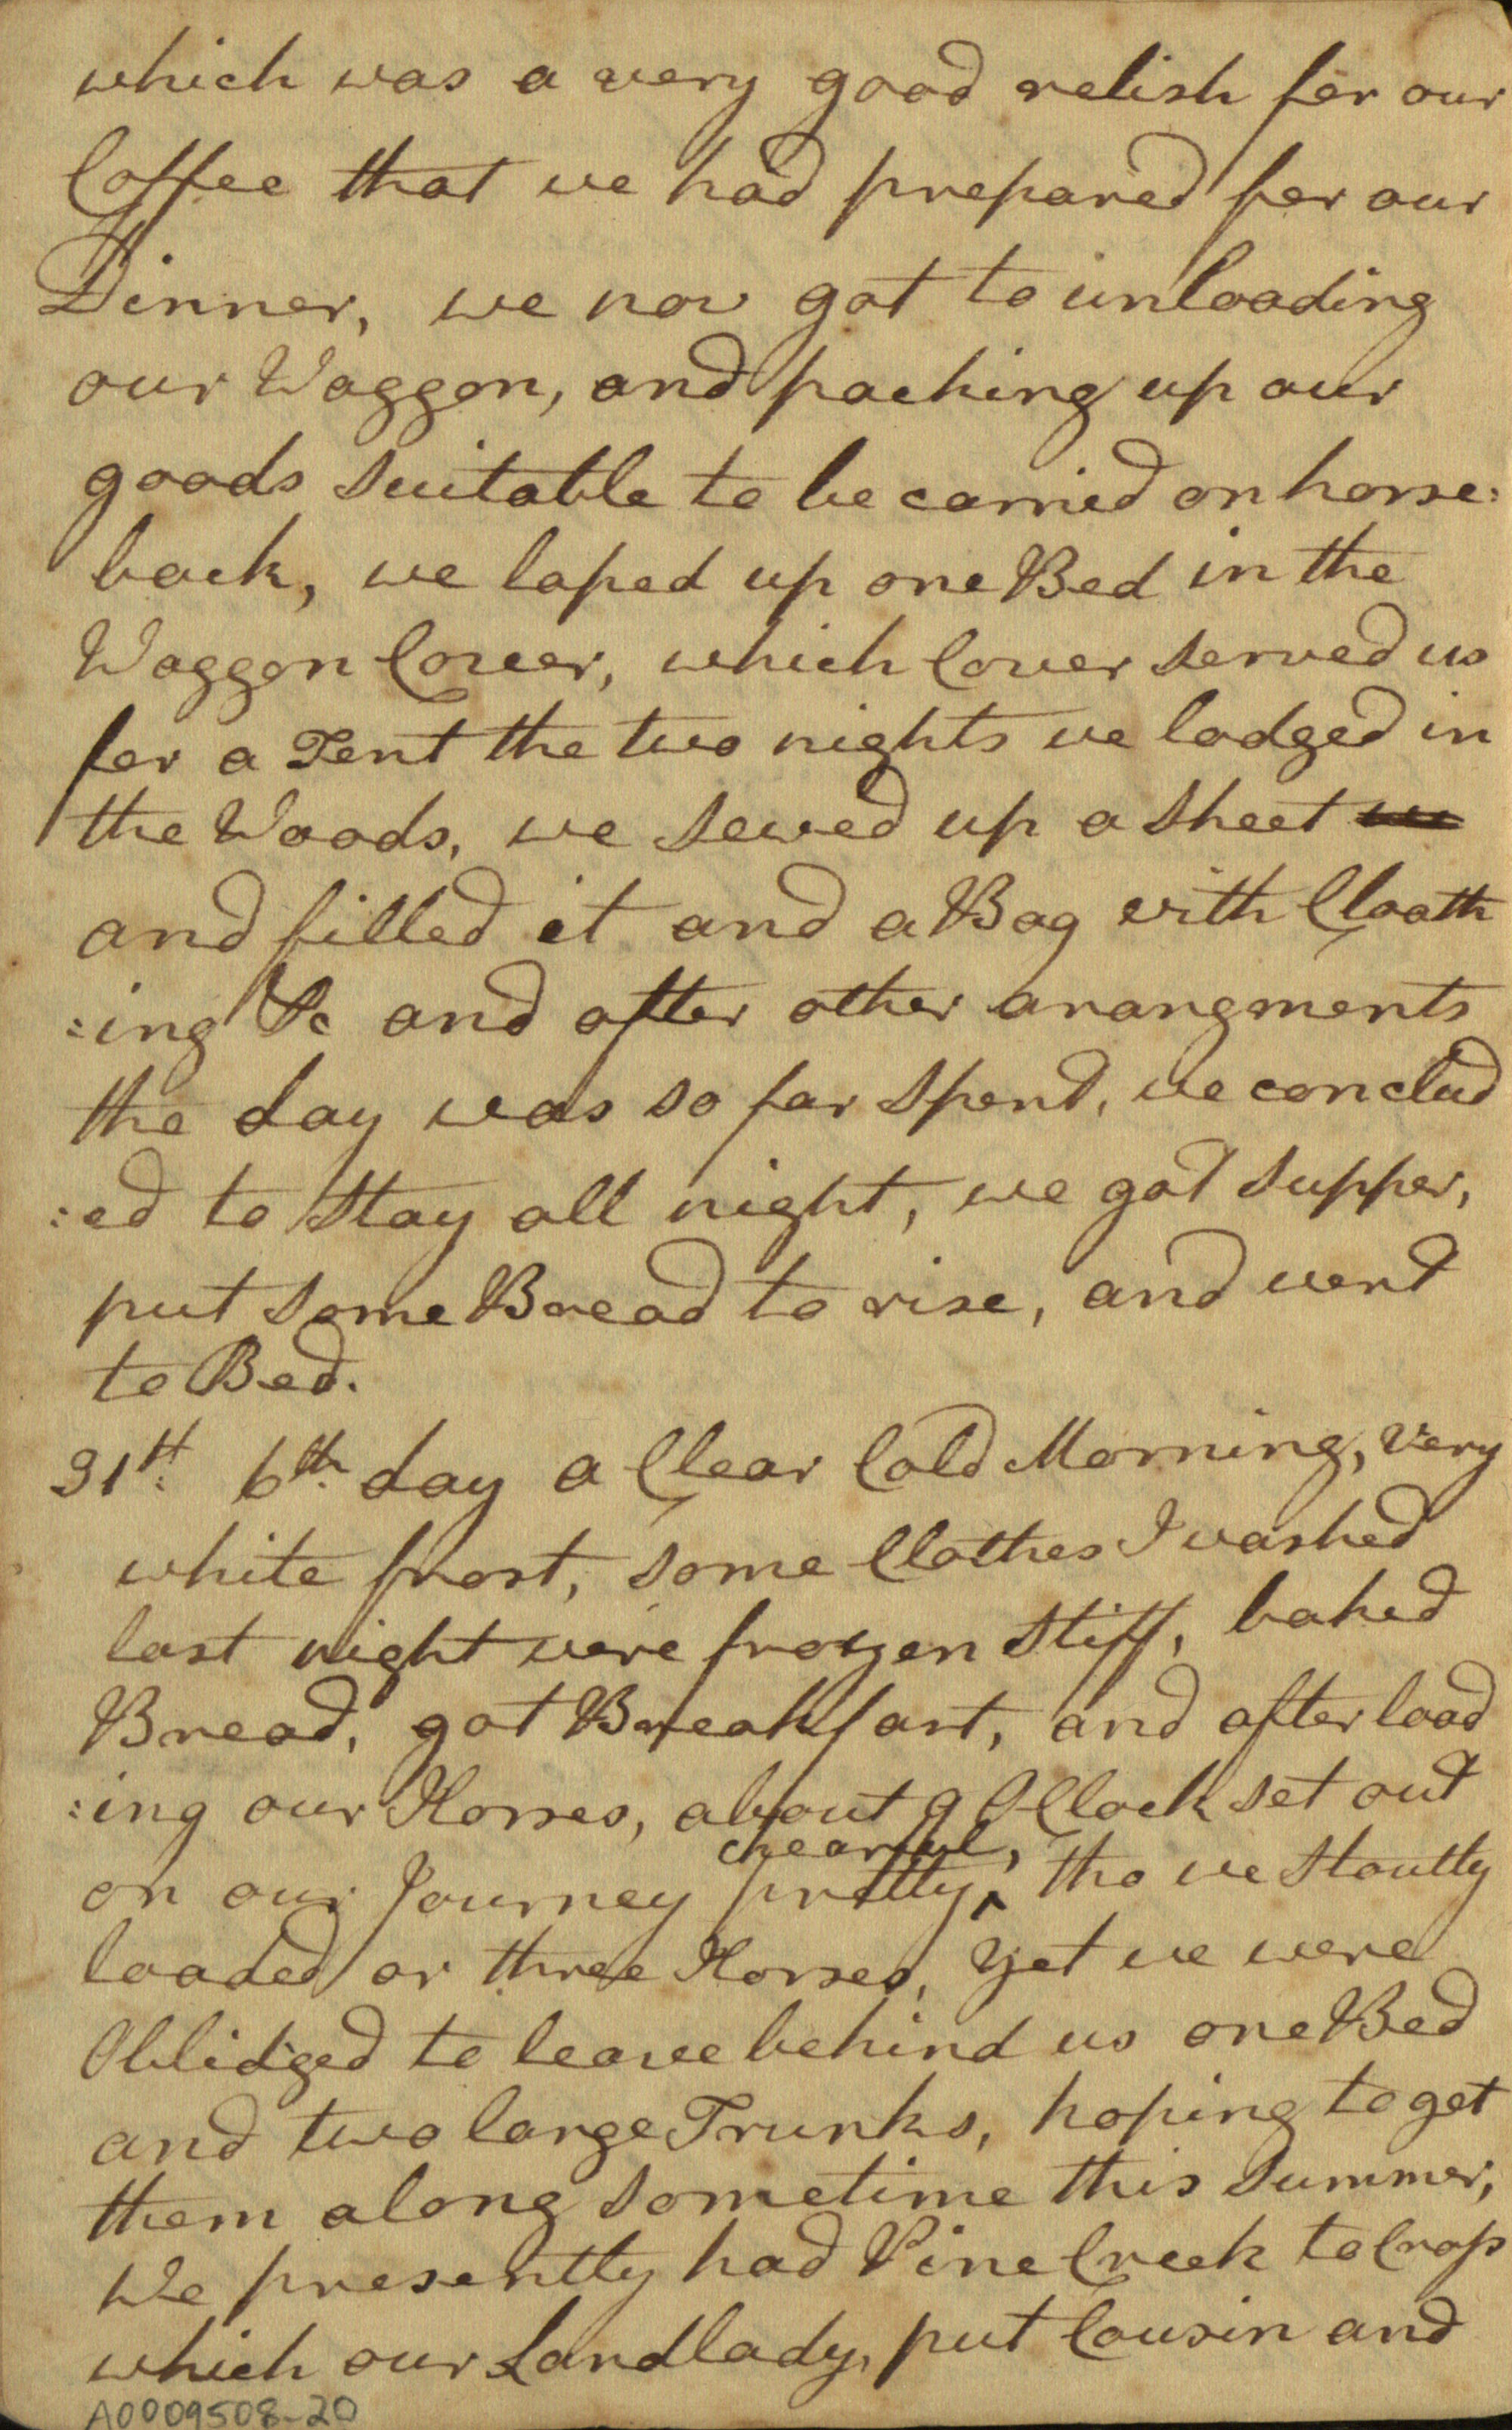 which was a very good relish for our
Coffee that we had prepared for our
Dinner, we now got to unloading
our Waggon, and packing up our
goods suitable to be carried on horse:
back, we laped up one Bed in the
Waggon Cover, which Cover served us
for a Tent the two nights we lodged in
the Woods, we sewed up a sheet we
and filled it and a Bag with Cloath
:ing &c and after other arangments
the day was so far spent, we conclud
:ed to stay all night, we got supper,
put some Bread to rise, and went
to Bed.
31st. 6th. day a Clear Cold Morning, very
white frost, some Clothes I washed
last night were frozen stiff, baked
Bread, got Breakfast, and after load
:ing our Horses, about 9 OClock set out
on our Journey pretty ^ chearful, tho we stoutly
loaded or three Horses, yet we were
Oblidged to leave behind us one Bed
and two large Trunks, hoping to get
them along sometime this summer,
We presently had Pine Creek to Cross
which our Landlady, put Cousin and
A0009508-20